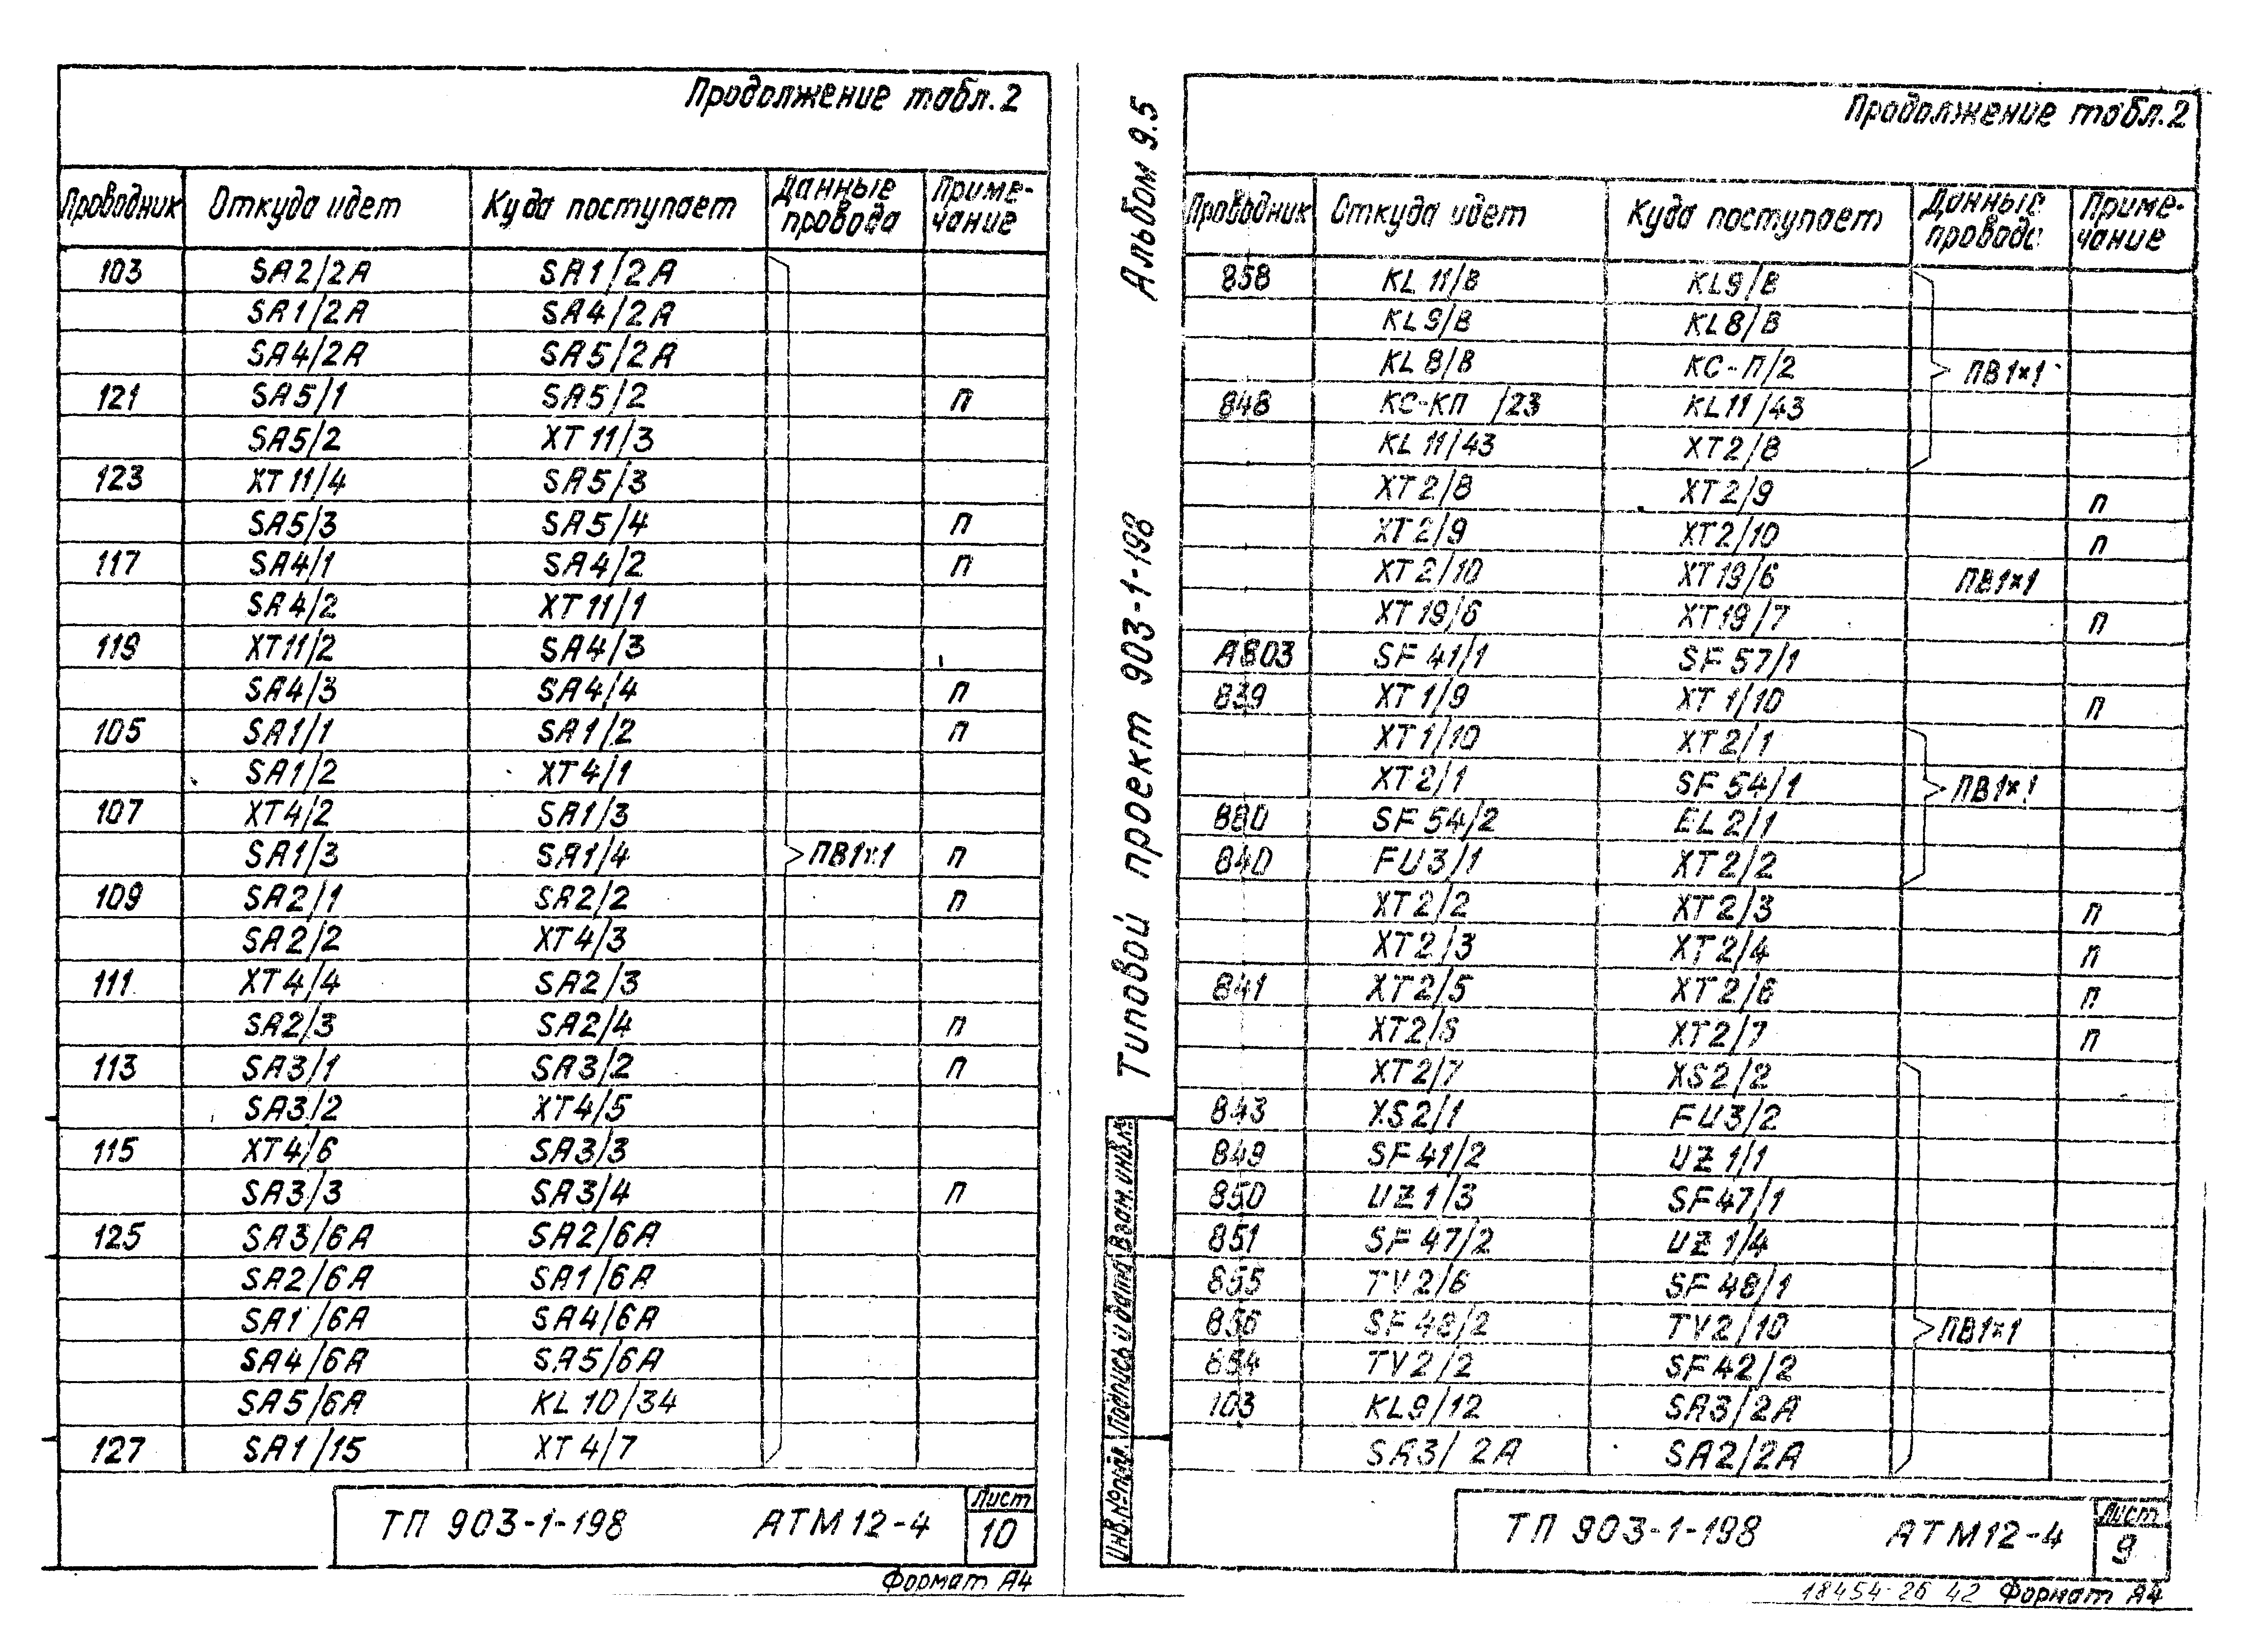 Продолжение табл.2
Проводник Откуда идет Куда поступает Данные провода Приме-чание
103 SA2/2A SA1/2A
SA1/2A SA4/2A
SA4/2A SA5/2A
121 SA5/1 SA5/2 п
SA5/2 XT11/3
123 XT11/4 SA5/3
SA5/3 SA5/4 п
117 SA4/1 SA4/2 п
SA4/2 XT11/1
119 XT11/2 SA4/3
SA4/3 SA4/4 п
105 SA1/1 SA1/2 п
SA1/2 XT4/1
107 XT4/2 SA1/3
SA1/3 SA1/4 ПВ1×1 п
109 SA2/1 SA2/2 п
SA2/2 XT4/3
111 XT4/4 SA2/3
SA2/3 SA2/4 п
113 SA3/1 SA3/2 п
SA3/2 XT4/5
115 XT4/6 SA3/3
SA3/3 SA3/4 п
125 SA3/6A SA2/6A
SA2/6A SA1/6A
SA1/6A SA4/6A
SA4/6A SA5/6A
SA5/6A KL10/34
127 SA1/15 XT4/7
ТП 903-1-198 АТМ12-4 Лист 10
Формат А4
Альбом 9.5
Типовой проект 903-1-198
Инв.№подл. Подпись и дата Взам.инв.№
Продолжение табл.2
Проводник Откуда идет Куда поступает Данные провода Приме-чание
858 KL11/8 KL9/8
KL9/8 KL8/8
KL8/8 КС-П/2 ПВ1×1
848 КС-КП /23 KL11/43
KL11/43 XT2/8
XT2/8 XT2/9 п
XT2/9 XT2/10 п
XT2/10 XT19/6 ПВ1×1
XT19/6 XT19/7 п
А803 SF41/1 SF57/1
839 XT1/9 XT1/10 п
XT1/10 XT2/1
XT2/1 SF54/1 ПВ1×1
880 SF54/2 EL2/1
840 FU3/1 XT2/2
XT2/2 XT2/3 п
XT2/3 XT2/4 п
841 XT2/5 XT2/6 п
XT2/6 XT2/7 п
XT2/7 XS2/2
843 XS2/1 FU3/2
849 SF41/2 UZ1/1
850 UZ1/3 SF47/1
851 SF47/2 UZ1/4
855 TV2/6 SF48/1
856 SF48/2 TV2/10 ПВ1×1
854 TV2/2 SF42/2
103 KL9/12 SA3/2A
SA3/2A SA2/2A
ТП 903-1-198 АТМ12-4 Лист 9
18454-26 42 Формат А4